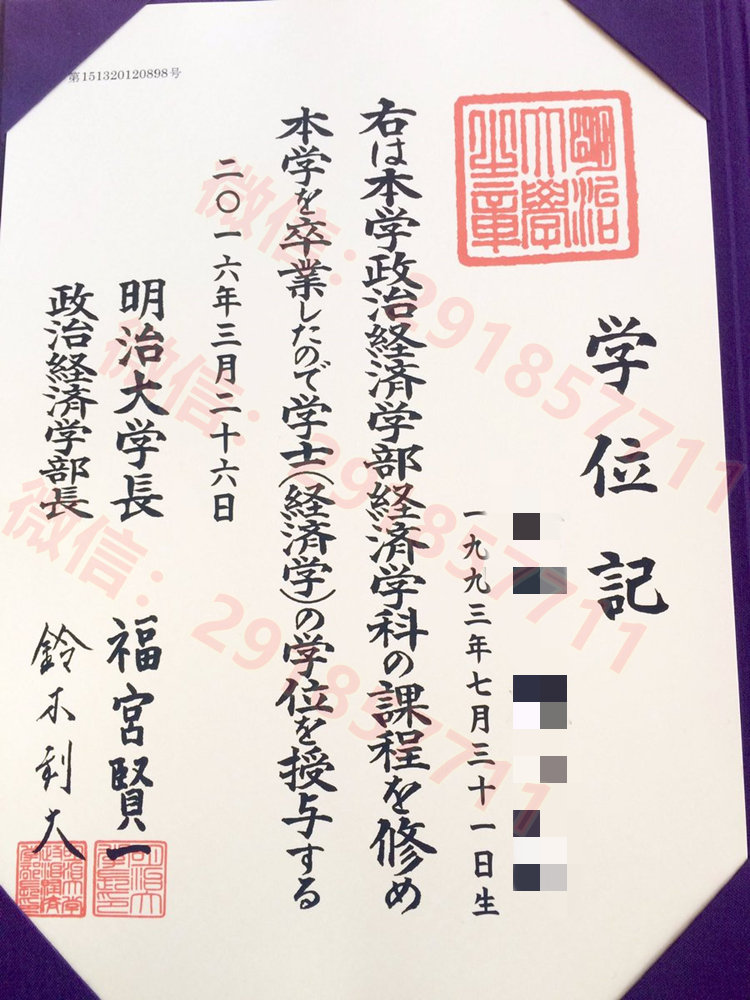 第151320120898号
学位記
一九九三年七月三十一日生
右は本学政治経済学部経済学科の課程を修め
本学を卒業したので学士(経済学)の学位を授与する
二〇一六年三月二十六日
明治大学長 福宮賢一
政治経済学部長 鈴木利大
明治大學之章
微信：291857711
微信：291857711
微信：291857711